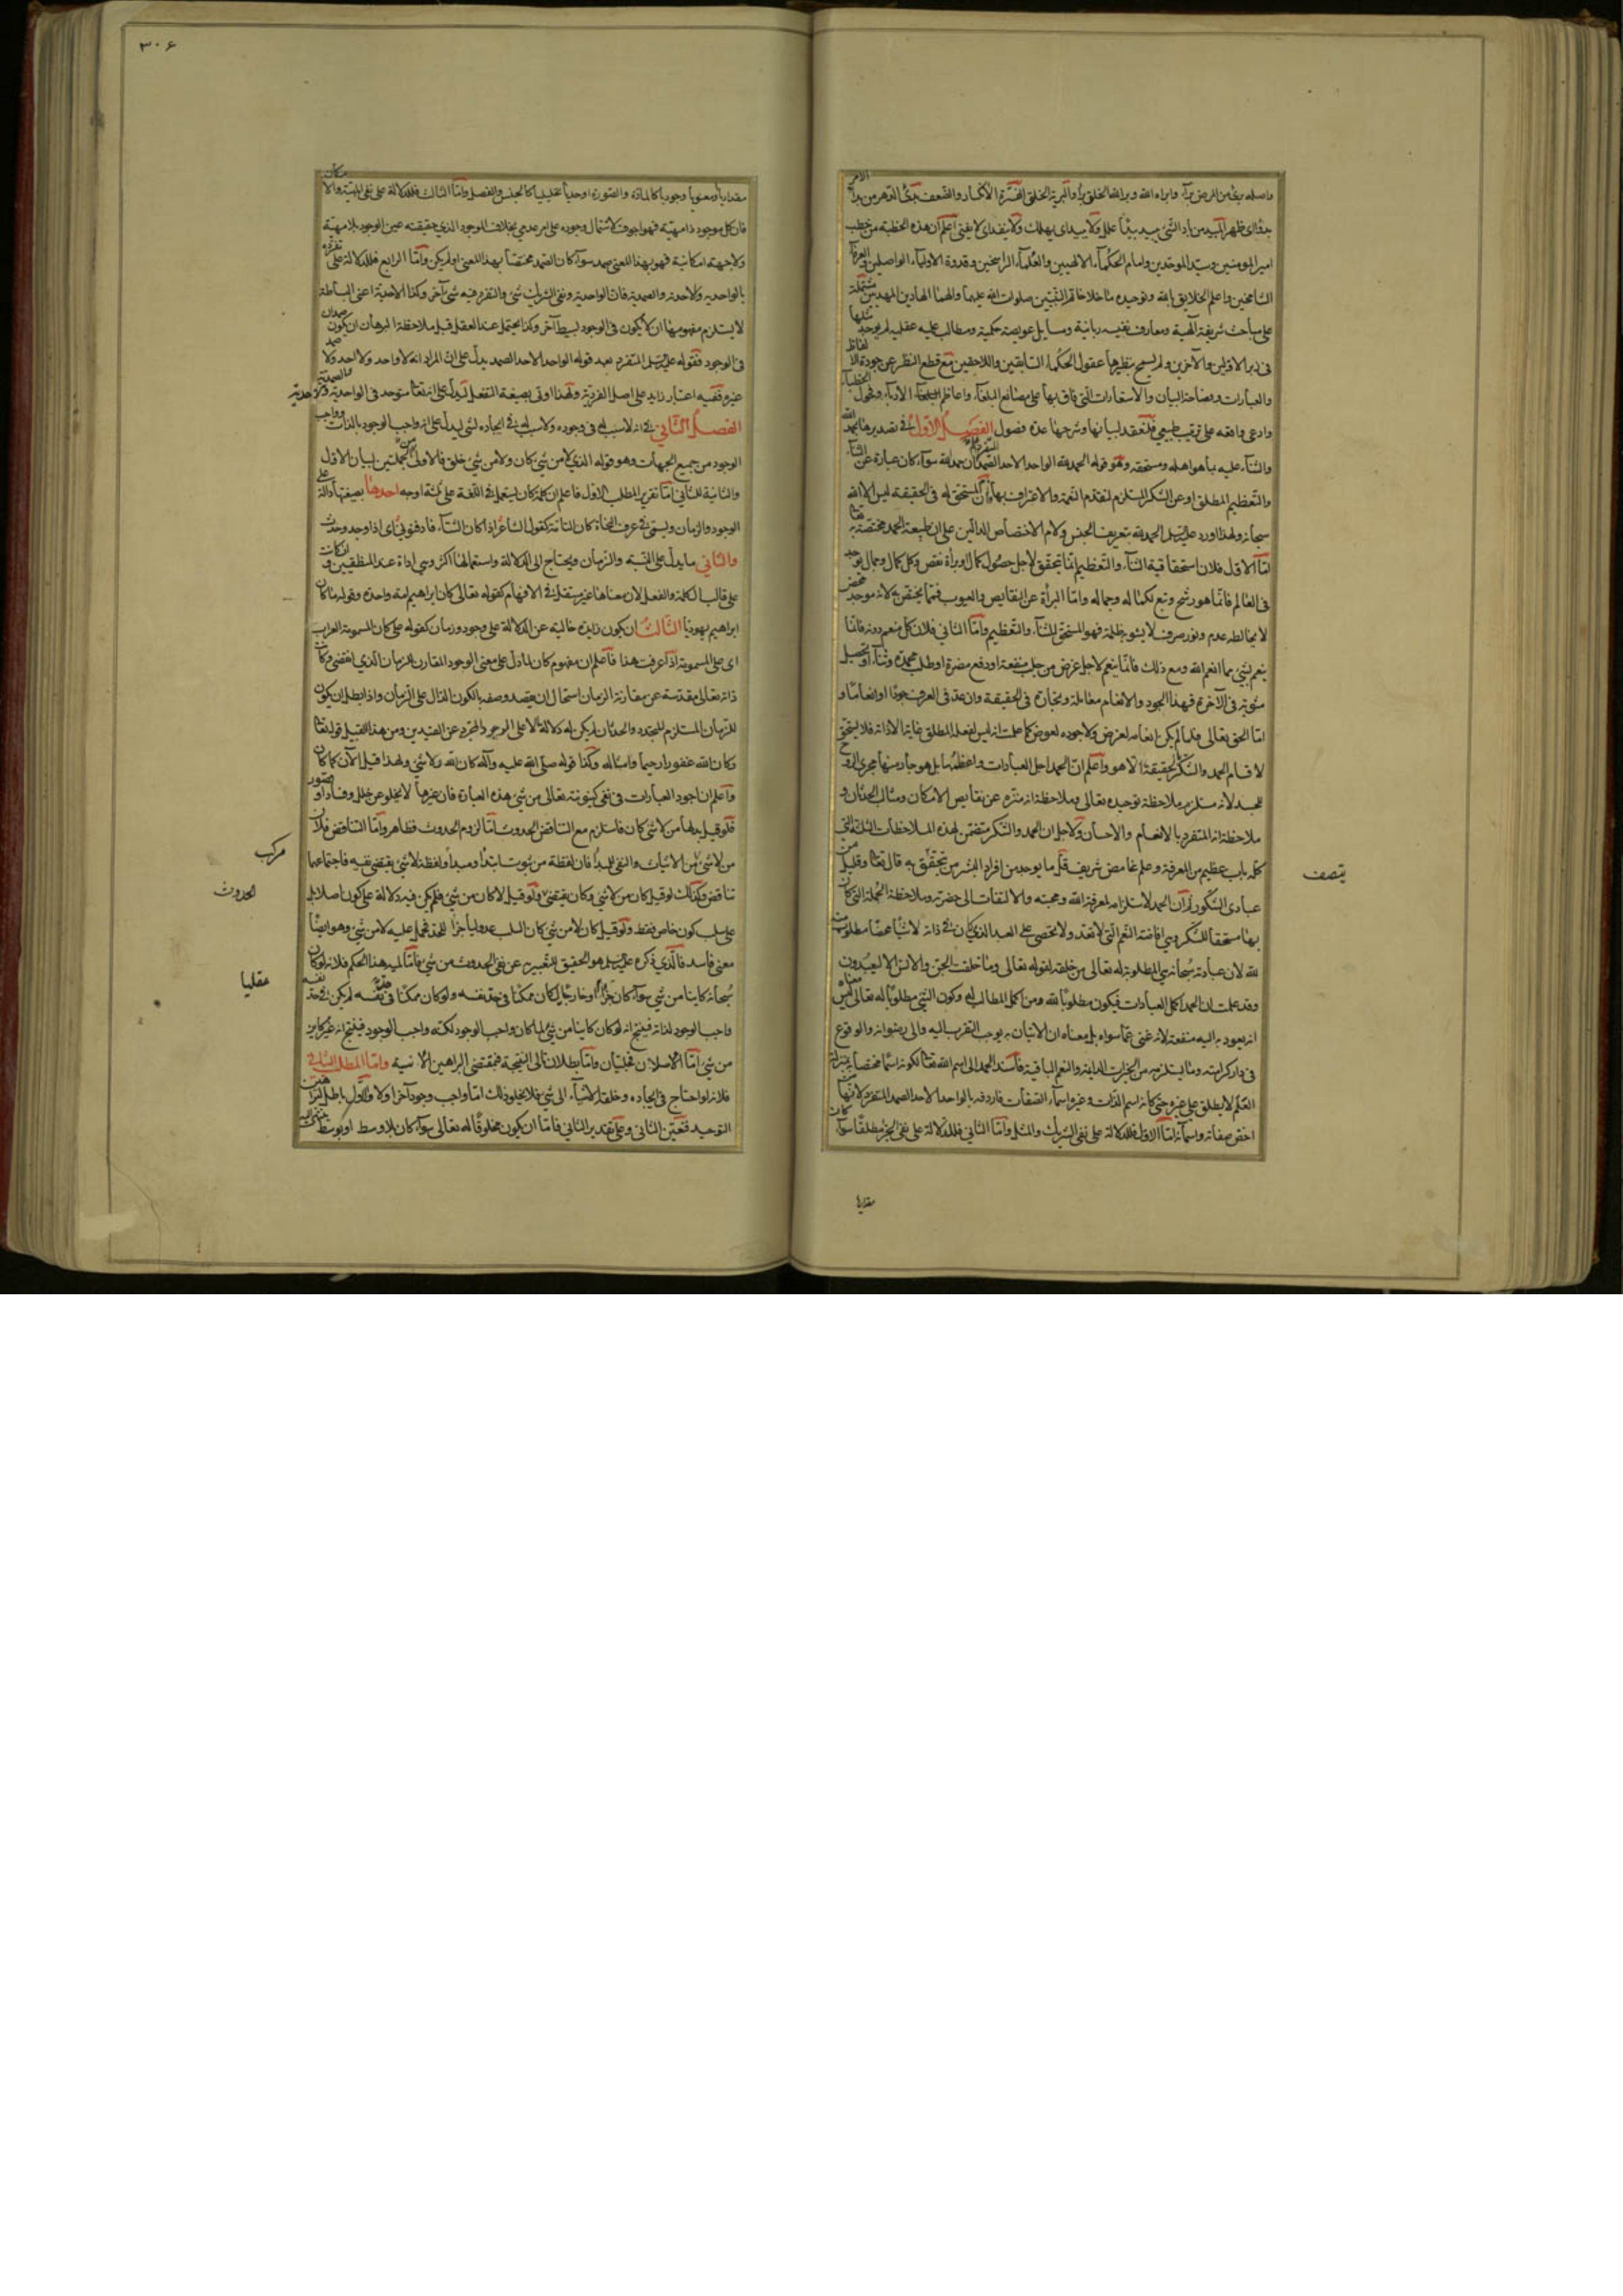 واصله برئ من المرض برآء وابراه الله وبرا الله الخلق برأ والبرية الخلق الفترة الانكسار والضعف بدئ الدهر من بدا الامر
بدوا اى ظهر ابتد من اباد الشئ يبيد بيدا هلك ولا يبيد اى يهلك ولا ينفد اى لا يفنى اعلم ان هذه الخطبة من خطب
امير المومنين وسيد الموحدين وامام الحكماء الالهيين والعلماء الراسخين وقدوة الاولياء الواصلين والعرفاء
الشامخين واعلم الخلايق بالله وتوحيده ما خلا خاتم النبيين صلوات الله عليهما والهما الهادين المهديين مشتملة
على مباحث شريفة الهية ومعارف نفيسة ربانية ومسايل عويصة حكمية ومطالب علية عقلية لم يوجد مثلها
فى زبر الاولين والآخرين ولم يسمح بنظيرها عقول الحكماء السابقين واللاحقين مع قطع النظر عن جودة الالفاظ
والعبارات وفصاحة البيان والاستعارات التى فاق بها على مصانع البلغاء واعاظم الادباء وفحول الخطباء
ولنعقد لبيانها وشرحها عدة فصول الفصل الاول فى تصديرها بحمد الله
والثناء عليه بما هو اهله ومستحقه وهو قوله الحمد لله الواحد الاحد الصمد المتفرد اعلم ان حمد الله سواء كان عبارة عن الثناء
والتعظيم المطلق او عن الشكر المستلزم لتقدم النعمة والاعتراف بها فان المستحق له فى الحقيقة ليس الا الله
سبحانه ولهذا اورد عليه السلم الحمد لله بتعريف الجنس ولام الاختصاص الدالين على ان طبيعة الحمد مختصة به تعا
اما الاول فلان استحقاقية الثناء والتعظيم انما يتحقق لاجل حصول كمال او براءة نقص وكل كمال وجمال يوجد
فى العالم فانما هو رشح وتبع لكماله وجماله واما البرأة عن النقايص والعيوب فمما يختص به لانه وجود محض
لا يخالطه عدم ونور صرف لا يشوبه ظلمة فهو المستحق للثناء والتعظيم واما الثانى فلان كل منعم دونه فانما
ينعم بشئ مما انعم الله ومع ذلك فانما ينعم لاجل غرض من جلب منفعة او دفع مضرة او طلب محمدة وثناء او تحصيل
مثوبة فى الآخرة فهذا الجود والانعام معاملة وتجارة فى الحقيقة وان عد فى العرف جودا او انعاما و
اما الحق تعالى فلما لم يكن انعامه لغرض ولا جوده لعوض كما علمت انه ليس لفعله المطلق غاية الا ذاته فلا يستحق
لاقسام الحمد والشكر بالحقيقة الا هو واعلم ان الحمد اجل العبادات واعظمها بل هو جار منها مجرى الروح
للجسد لانه مستلزم ملاحظة توحيده تعالى وملاحظة انه منزه عن نقايص الامكان ومثالب الحدثان و
ملاحظة انه المتفرد بالانعام والاحسان ولاجل ان الحمد والشكر متضمن لهذه الملاحظات الثلثة التى
كله باب عظيم من المعرفة وعلم غامض شريف قلما يوجد من افراد البشر من يتحقق به قال تعا وقليل من
عبادى الشكور ثم ان الحمد لاستلزامه لمعرفة الله ومحبته والالتفات الى حضرته وملاحظة الجملة التى كان
بها مستحقا للشكر وهى افاضة النعم التى لا تعد ولا تحصى على العبد الذى كان فى ذاته لا شيئا محضا مطلوب منه
لله لان عبادته سبحانه هى المطلوبة له تعالى من خلقه لقوله تعالى وما خلقت الجن والانس الا ليعبدون
وقد علمت ان الحمد اكمل العبادات فيكون مطلوبا لله ومن اكمل المطالب له وكون الشئ مطلوبا له تعالى ليس معناه
انه يعود به اليه منفعة لانه غنى عما سواه بل معناه ان الاتيان به يوجب التقرب اليه والى رضوانه والوقوع
فى دار كرامته وما يستلزمه من الخيرات الدايمة والنعم الباقية فاسند الحمد الى اسم الله تعا لكونه اسما مختصا بمنزلة
العلم لا يطلق على غيره حتى كانه اسم الذات وغيره اسماء الصفات فاردفه بالواحد الاحد الصمد المتفرد لانها
اخص صفاته واسمائه اما الاول فللدلالة على نفى الشريك والمثل واما الثانى فللدلالة على نفى الجزء مطلقا سواء كان
مقداريا
يتصف
٣٠٦
مقداريا او معنويا وجوديا كالمادة والصورة او حديا تحليليا كالجنس والفصل واما الثالث فللدلالة على نفى المهية والامكان
فان كل موجود ذا مهية فهو اجوف لاشتمال وجوده على امر عدمى بخلاف الموجود الذى حقيقته عين الوجود بلا مهية
ولا جهة امكانية فهو بهذا المعنى صمد سواء كان الصمد مختصا بهذا المعنى او لم يكن واما الرابع فللدلالة على تفرده
بالواحدية والاحدية والصمدية فان الواحدية ونفى الشريك شئ والتفرد فيه شئ آخر وكذا الاحدية اعنى البساطة
لا يستلزم مفهومها ان لا يكون فى الوجود بسيط آخر وكذا يحتمل عند العقل قبل ملاحظة البرهان ان يكون صمدان
فى الوجود فقوله عليه السلم المتفرد بعد قوله الواحد الاحد الصمد يدل على ان المراد انه لا واحد ولا احد ولا صمد
غيره ففيه اعتبار زايد على اصل الفردية ولهذا اوتى بصيغة التفعل ليدل على انه تعا متوحد فى الواحدية والاحدية والصمدية
الفصل الثانى فى انه لا سبب له فى وجوده ولا سبب له فى ايجاده لشئ ليدل على انه واجب الوجود بالذات وواجب
الوجود من جميع الجهات وهو قوله الذى لا من شئ كان ولا من شئ خلق فالاولى من الجملتين لبيان الاول
والثانية للثانى اما تقرير المطلب الاول فاعلم ان كلمة كان يستعمل فى اللغة على ثلثة اوجه احدها بصيغتها دالة على
الوجود والزمان ويسمى فى عرف النحاة كان التامة كقول الشاعر اذا كان الشتاء فادفئونى اى اذا وجد وحدث
والثانى ما يدل على النسبة والزمان ويحتاج الى الدلالة واستعمالها اكثر وهى اداة عند المنطقيين وان كانت
على قالب الكلمة والفعل لان معناها غير مستقل فى الافهام كقوله تعالى كان ابراهيم امة واحدة وقوله ما كان
ابراهيم يهوديا الثالث ان يكون زايدة خالية عن الدلالة على وجود وزمان كقوله على كان المسومة العراب
اى على المسومة اذا عرفت هذا فاعلم ان مفهوم كان لما دل على معنى الوجود المقارن للزمان الذى انقضى وكانت
ذاته تعالى مقدسة عن مقارنة الزمان استحال ان يقصد وصفه بالكون الدال على الزمان واذا بطل ان يكون
للزمان المستلزم للتجدد والحدثان لم يكن له دلالة الا على الوجود المجرد عن القيدين ومن هذا القبيل قوله تعا
وكان الله غفورا رحيما وامثاله وكذا قوله صلى الله عليه وآله كان الله ولا شئ ولهذا قيل الآن كما كان
واعلم ان اجود العبارات فى نفى كينونته تعالى من شئ هذه العبارة فان غيرها لا يخلو عن خلل وفساد او قصور
فلو قيل بدلها من لا شئ كان فاستلزم مع التناقض الحدوث اما لزوم الحدوث فظاهر واما التناقض فلان
من لاشئ من الاثبات والنفى للمبدأ فان لفظة من يثبت ابتداء ومبدأ ولفظة لا شئ يقتضى نفيه فاجتماعهما
تناقض وكذلك لو قيل كان من لا شئ وكان يقتضى ولو قيل لا كان من شئ فلم يكن فيه دلالة على كون اصلا بل
على سلب كون خاص فقط ولو قيل كان لا من شئ كان السلب عدوليا جزءا للحد محمل عليه لا من شئ وهو ايضا
معنى فاسد فالذى ذكره عليه السلم هو الحقيق للتعبير به عن نفى الحدوث من شئ فاما لمية هذا الحكم فلانه لو كان
سبحانه كاينا من شئ سواء كان جزءا او خارجا لكان ممكنا فى حد نفسه ولو كان ممكنا فى نفسه لم يكن فى حد نفسه
واجب الوجود لذاته فينتج انه لو كان كاينا من شئ لما كان واجب الوجود لكنه واجب الوجود فينتج انه غير كاين
من شئ اما الاصلان فجليان واما بطلان تالى النتيجة فبمقتضى البراهين الانية واما المطلب الثانى
فلانه لو احتاج فى ايجاده وخلقه الاشياء الى شئ فلا يخلو ذلك اما واجب وجود آخر او لا والاول باطل لبراهين
التوحيد فتعين الثانى وعلى تقدير الثانى فاما ان يكون مخلوقا له تعالى سواء كان بلا وسط او بوسط
مركب
الحدوث
عقليا